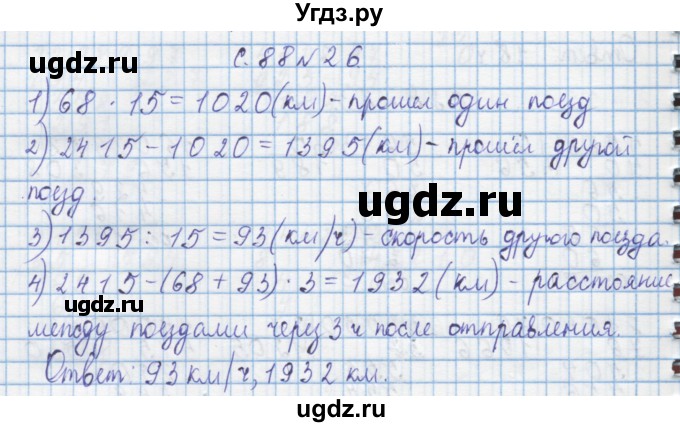 Угдз.ру
с. 88 № 26
1) 68 · 15 = 1020 (км) - прошел один поезд
2) 2415 - 1020 = 1395 (км) - прошёл другой
поезд.
3) 1395 : 15 = 93 (км/ч) - скорость другого поезда.
4) 2415 - (68 + 93) · 3 = 1932 (км) - расстояние
между поездами через 3 ч после отправления.
Ответ: 93 км/ч, 1932 км.
ugdz.ru
ugdz.ru
ugdz.ru
ugdz.ru
ugdz.ru
ugdz.ru
ugdz.ru
ugdz.ru
ugdz.ru